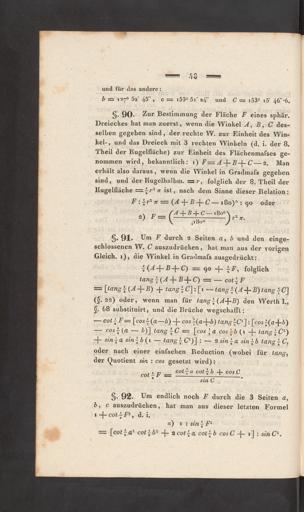 — 48 —
und für das andere:
b = 127° 52' 45", c = 153° 51' 24" und C = 153° 15' 46"·6.
§. 90. Zur Bestimmung der Fläche F eines sphär.
Dreieckes hat man zuerst, wenn die Winkel A, B, C des-
selben gegeben sind, der rechte W. zur Einheit des Win-
kel-, und das Dreieck mit 3 rechten Winkeln (d. i. der 8.
Theil der Kugelfläche) zur Einheit des Flächenmaſses ge-
nommen wird, bekanntlich: 1) F = A + B + C — 2. Man
erhält also daraus, wenn die Winkel in Gradmaſs gegeben
sind, und der Kugelhalbm. = r, folglich der 8. Theil der
Kugelfläche = ½ r² π ist, nach dem Sinne dieser Relation:
F : ½ r² π = (A + B + C — 180)° : 90 oder
2) F = ( (A + B + C — 180°) / 180° ) r² π.
§. 91. Um F durch 2 Seiten a, b und den einge-
schlossenen W. C auszudrücken, hat man aus der vorigen
Gleich. 1), die Winkel in Gradmaſs ausgedrückt:
½ (A + B + C) = 90 + ½ F, folglich
tang ½ (A + B + C) = — cot ½ F
= [tang ½ (A + B) + tang ½ C] : [1 — tang ½ (A + B) tang ½ C]
(§. 22) oder, wenn man für tang ½ (A + B) den Werth I.,
§. 68 substituirt, und die Brüche wegschafft:
— cot ½ F = [cos ½ (a—b) + cos ½ (a+b) tang ½ C²] : [cos ½ (a+b)
— cos ½ (a — b)] tang ½ C = [cos ½ a cos ½ b (1 + tang ½ C²)
+ sin ½ a sin ½ b (1 — tang ½ C²)] : — 2 sin ½ a sin ½ b tang ½ C,
oder nach einer einfachen Reduction (wobei für tang,
der Quotient sin : cos gesetzt wird):
cot ½ F = (cot ½ a cot ½ b + cos C) / sin C.
§. 92. Um endlich noch F durch die 3 Seiten a,
b, c auszudrücken, hat man aus dieser letzten Formel
1 + cot ½ F², d. i.
a) 1 : sin ½ F²
= [cot ½ a² cot ½ b² + 2 cot ½ a cot ½ b cos C + 1] : sin C².